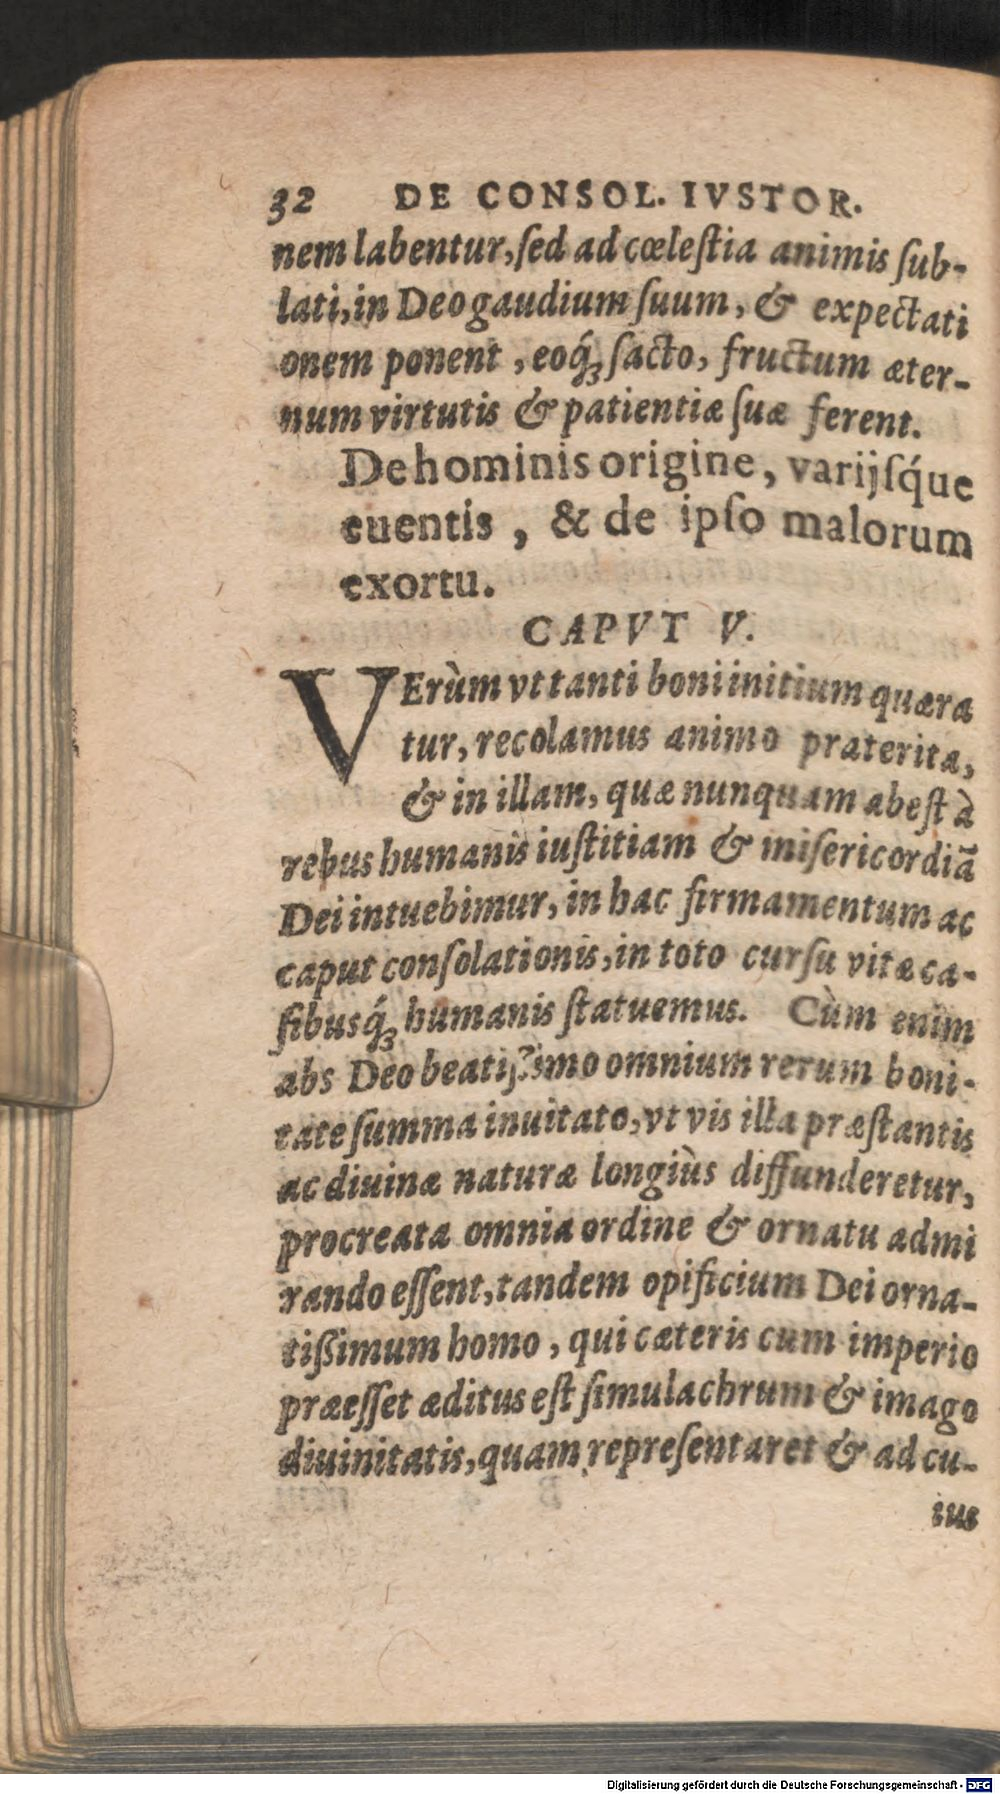 32 DE CONSOL. IVSTOR.
nem labentur, ſed ad cœleſtia animis ſub-
lati, in Deo gaudium ſuum, & expectati
onem ponent , eoq́ꝫ ſacto, fructum æter-
num virtutis & patientiæ ſuæ ferent.
De hominis origine, varijſq́ue
euentis , & de ipſo malorum
exortu.
CAPVT V.
VErùm vt tanti boni initium quæra
tur, recolamus animo præterita,
& in illam, quæ nunquam abeſt à
rebus humanis iuſtitiam & miſericordiã
Dei intuebimur, in hac firmamentum ac
caput conſolationis, in toto curſu vitæ ca-
ſibusq́ꝫ humanis ſtatuemus. Cùm enim
abs Deo beatiſsimo omnium rerum boni-
tate ſumma inuitato, vt vis illa præſtantis
ac diuinæ naturæ longiùs diffunderetur,
procreata omnia ordine & ornatu admi
rando eſſent, tandem opificium Dei orna-
tißimum homo , qui cæteris cum imperio
præeſſet æditus eſt ſimulachrum & imago
diuinitatis, quam repreſentaret & ad cu-
ius
Digitalisierung gefördert durch die Deutsche Forschungsgemeinschaft - DFG